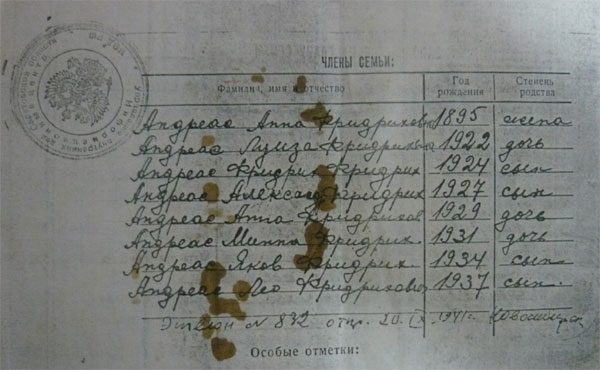 ЧЛЕНЫ СЕМЬИ:
Фамилия, имя и отчество Год рождения Степень родства
Андреас Анна Фридрихов 1895 жена
Андреас Луиза Фридрихов 1922 дочь
Андреас Фридрих Фридрих 1924 сын
Андреас Александ Фридрих 1927 сын
Андреас Анна Фридрихов 1929 дочь
Андреас Минна Фридрих. 1931 дочь
Андреас Яков Фридрих 1934 сын
Андреас Лео Фридрихович 1937 сын.
Эшелон N 832 отпр. 20. IX. 1941г.
Особые отметки: